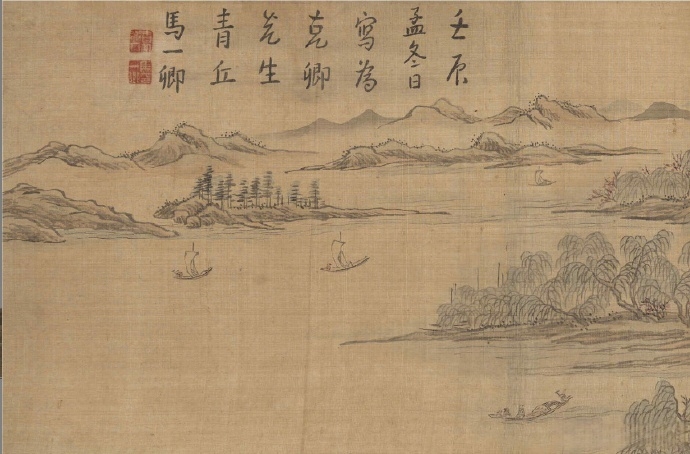 壬辰
孟冬日
寫為
克卿
先生
青丘
馬一卿